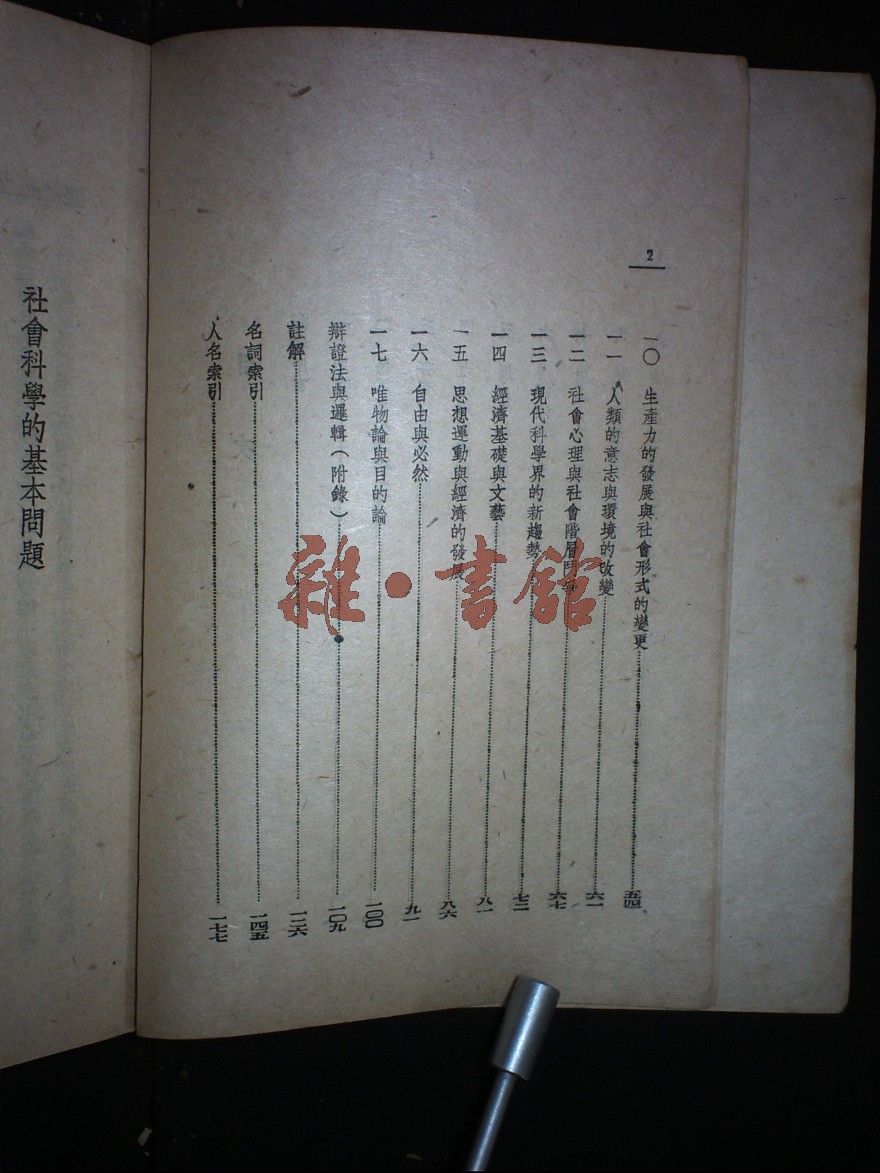 2
一〇 生產力的發展與社會形式的變更 五四
一一 人類的意志與環境的改變 六一
一二 社會心理與社會階層鬥爭 六七
一三 現代科學界的新趨勢 七三
一四 經濟基礎與文藝 八一
一五 思想運動與經濟的發展 八六
一六 自由與必然 九一
一七 唯物論與目的論 一〇〇
辯證法與邏輯（附錄） 一〇九
註解 一二六
名詞索引 一四五
人名索引 一七七
社會科學的基本問題
雜·書館